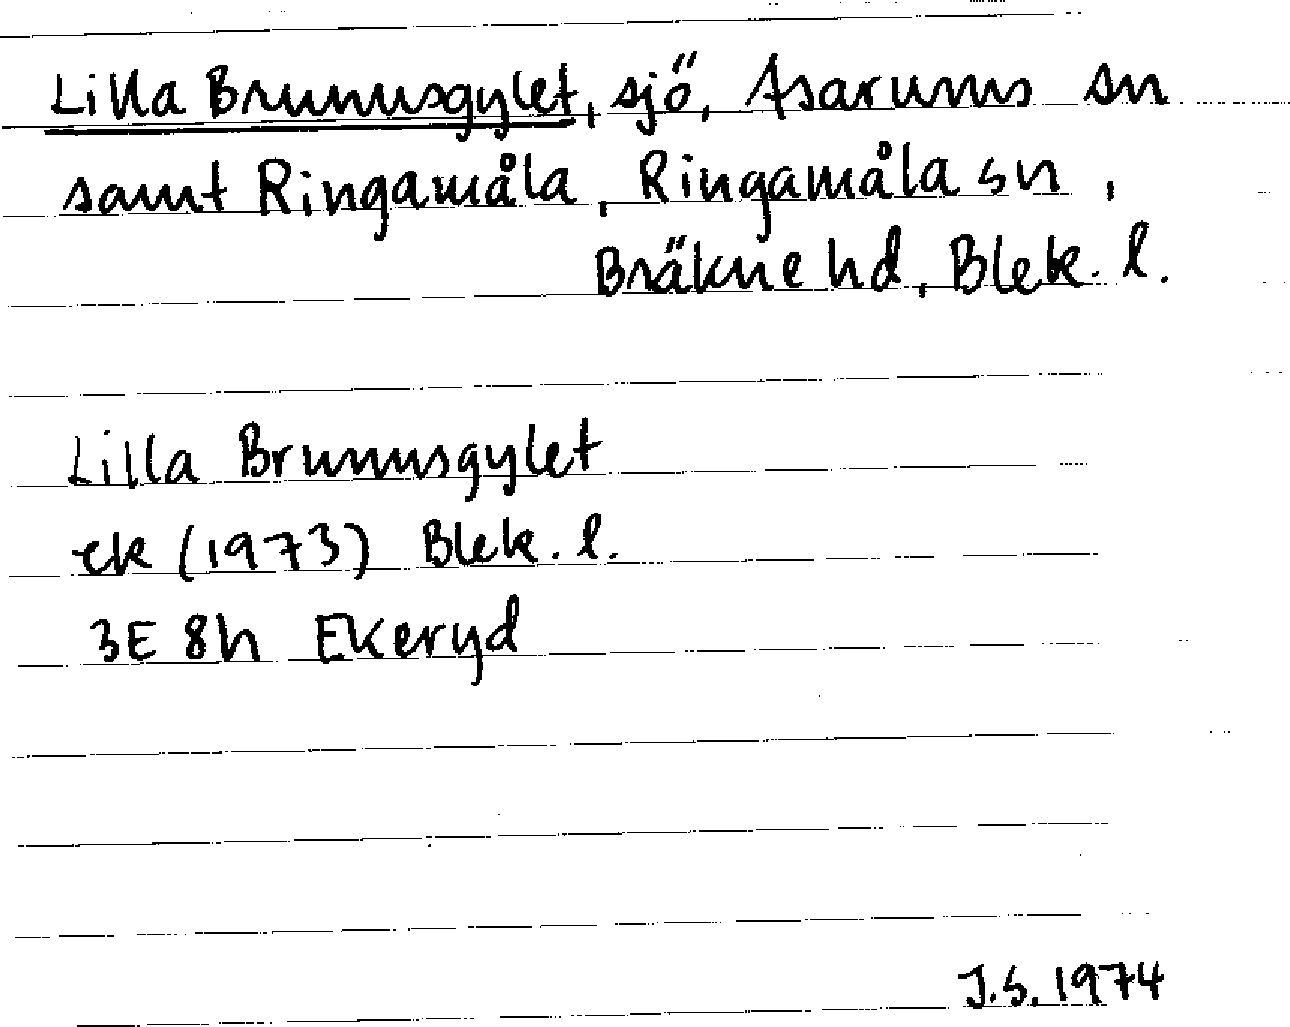 Lilla Brunnsgylet, sjö, Asarums sn
samt Ringamåla, Ringamåla sn,
Bräkne hd, Blek. l.
Lilla Brunnsgylet
ek (1973) Blek. l.
3E 8h Ekeryd
J.S. 1974